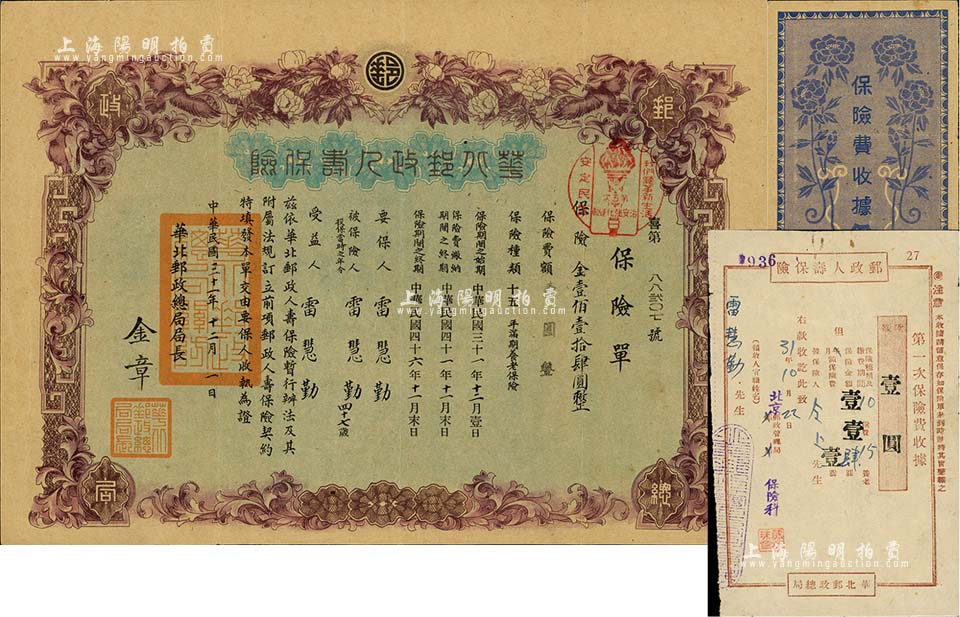 上海陽明拍賣
www.yangmingauction.com
郵
郵
政
總
局
華北郵政人壽保險
我們要革新生活
安定民
喜第 八八弍〇七 號
保險單
保險金壹佰壹拾肆圓整
保險費額 壹圓
保險種類 十五年滿期養老保險
保險期間之始期 中華民國三十一年十二月壹日
保險費繳納期間之終期 中華民國四十一年十一月末日
保險期間之終期 中華民國四十六年十一月末日
要保人 雷慧勤
被保險人 雷慧勤 四十七歲
投保當時之年令
受益人 雷慧勤
茲依華北郵政人壽保險暫行辦法及其
附屬法規訂立前項郵政人壽保險契約
特填發本單交由要保人收執為證
中華民國三十一年十二月一日
華北郵政總局局長
金章
保險費收據
1936
27
郵政人壽保險
第一次保險費收據
壹圓
右款收訖此致
31年10月22日
北京
保險科
雷慧勤 先生
華北郵政總局
上海陽明拍賣
www.yangmingauction.com
上海陽明拍賣
www.yangmingauction.com